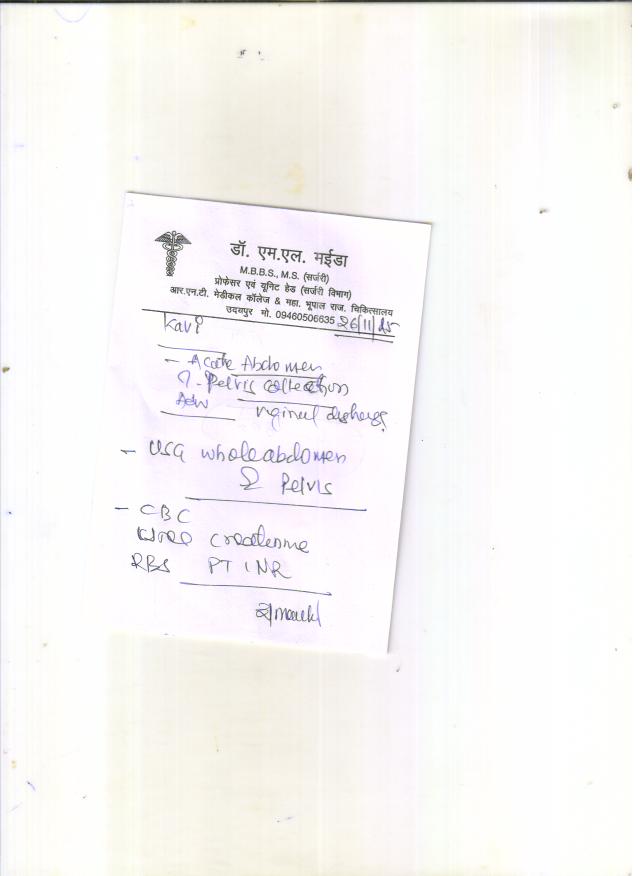 डॉ. एम.एल. मईडा
M.B.B.S., M.S. (सर्जरी)
प्रोफेसर एवं यूनिट हेड (सर्जरी विभाग)
आर.एन.टी. मेडीकल कॉलेज & महा. भूपाल राज. चिकित्सालय
उदयपुर मो. 09460506635 26/11/25
Kavi
- Acute Abdomen
?-Pelvis collection
Adv discharge
- USG whole abdomen
& Pelvis
- CBC
creatinine
RBS PT INR